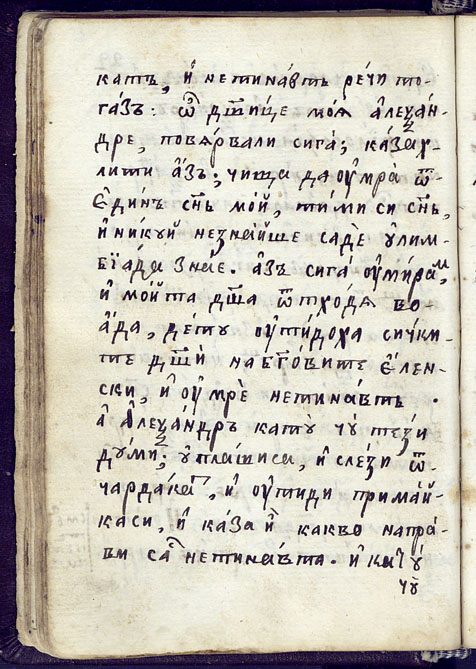 катъ, и҆ нетина́втъ ре́чи то-
га́зъ: ѿ дш҃ице моѧ̀ а҆леѯа́н-
дре, повѧ́рвали сига̀; ка́заⷯ-
лити а҆́зъ; чища да оу҆мра̀ ѿ
є҆ди́нъ сн҃ъ мо́й, ти́ми си сн҃ъ,
и҆ ни́куй незна́йше садѐ ѹ҆лим-
бїа́да зна́е. а҆́зъ сига̀ оу҆мира́ⷨ,
и҆ мо́йта дш҃а ѿтхо́дѧ во-
а҆́да, де́ту оу҆тидоха си́чки-
те дш҃ѝ на бг҃овите є҆́лен-
ски, и҆ оу҆мрѐ нетина́втъ.
а҆ а҆леѯа́ндръ катꙋ̀ чꙋ̀ те́зи
дꙋ́ми; ѹ҆пла́шиса, и҆ сле́зи ѿ
чарда́ка, и҆ оу҆тиди при ма́й-
каси, и҆ ка́за и҆̀ какво напра́-
ви саⷭ нетина́вта. и҆ катꙋ̀
чꙋ̀